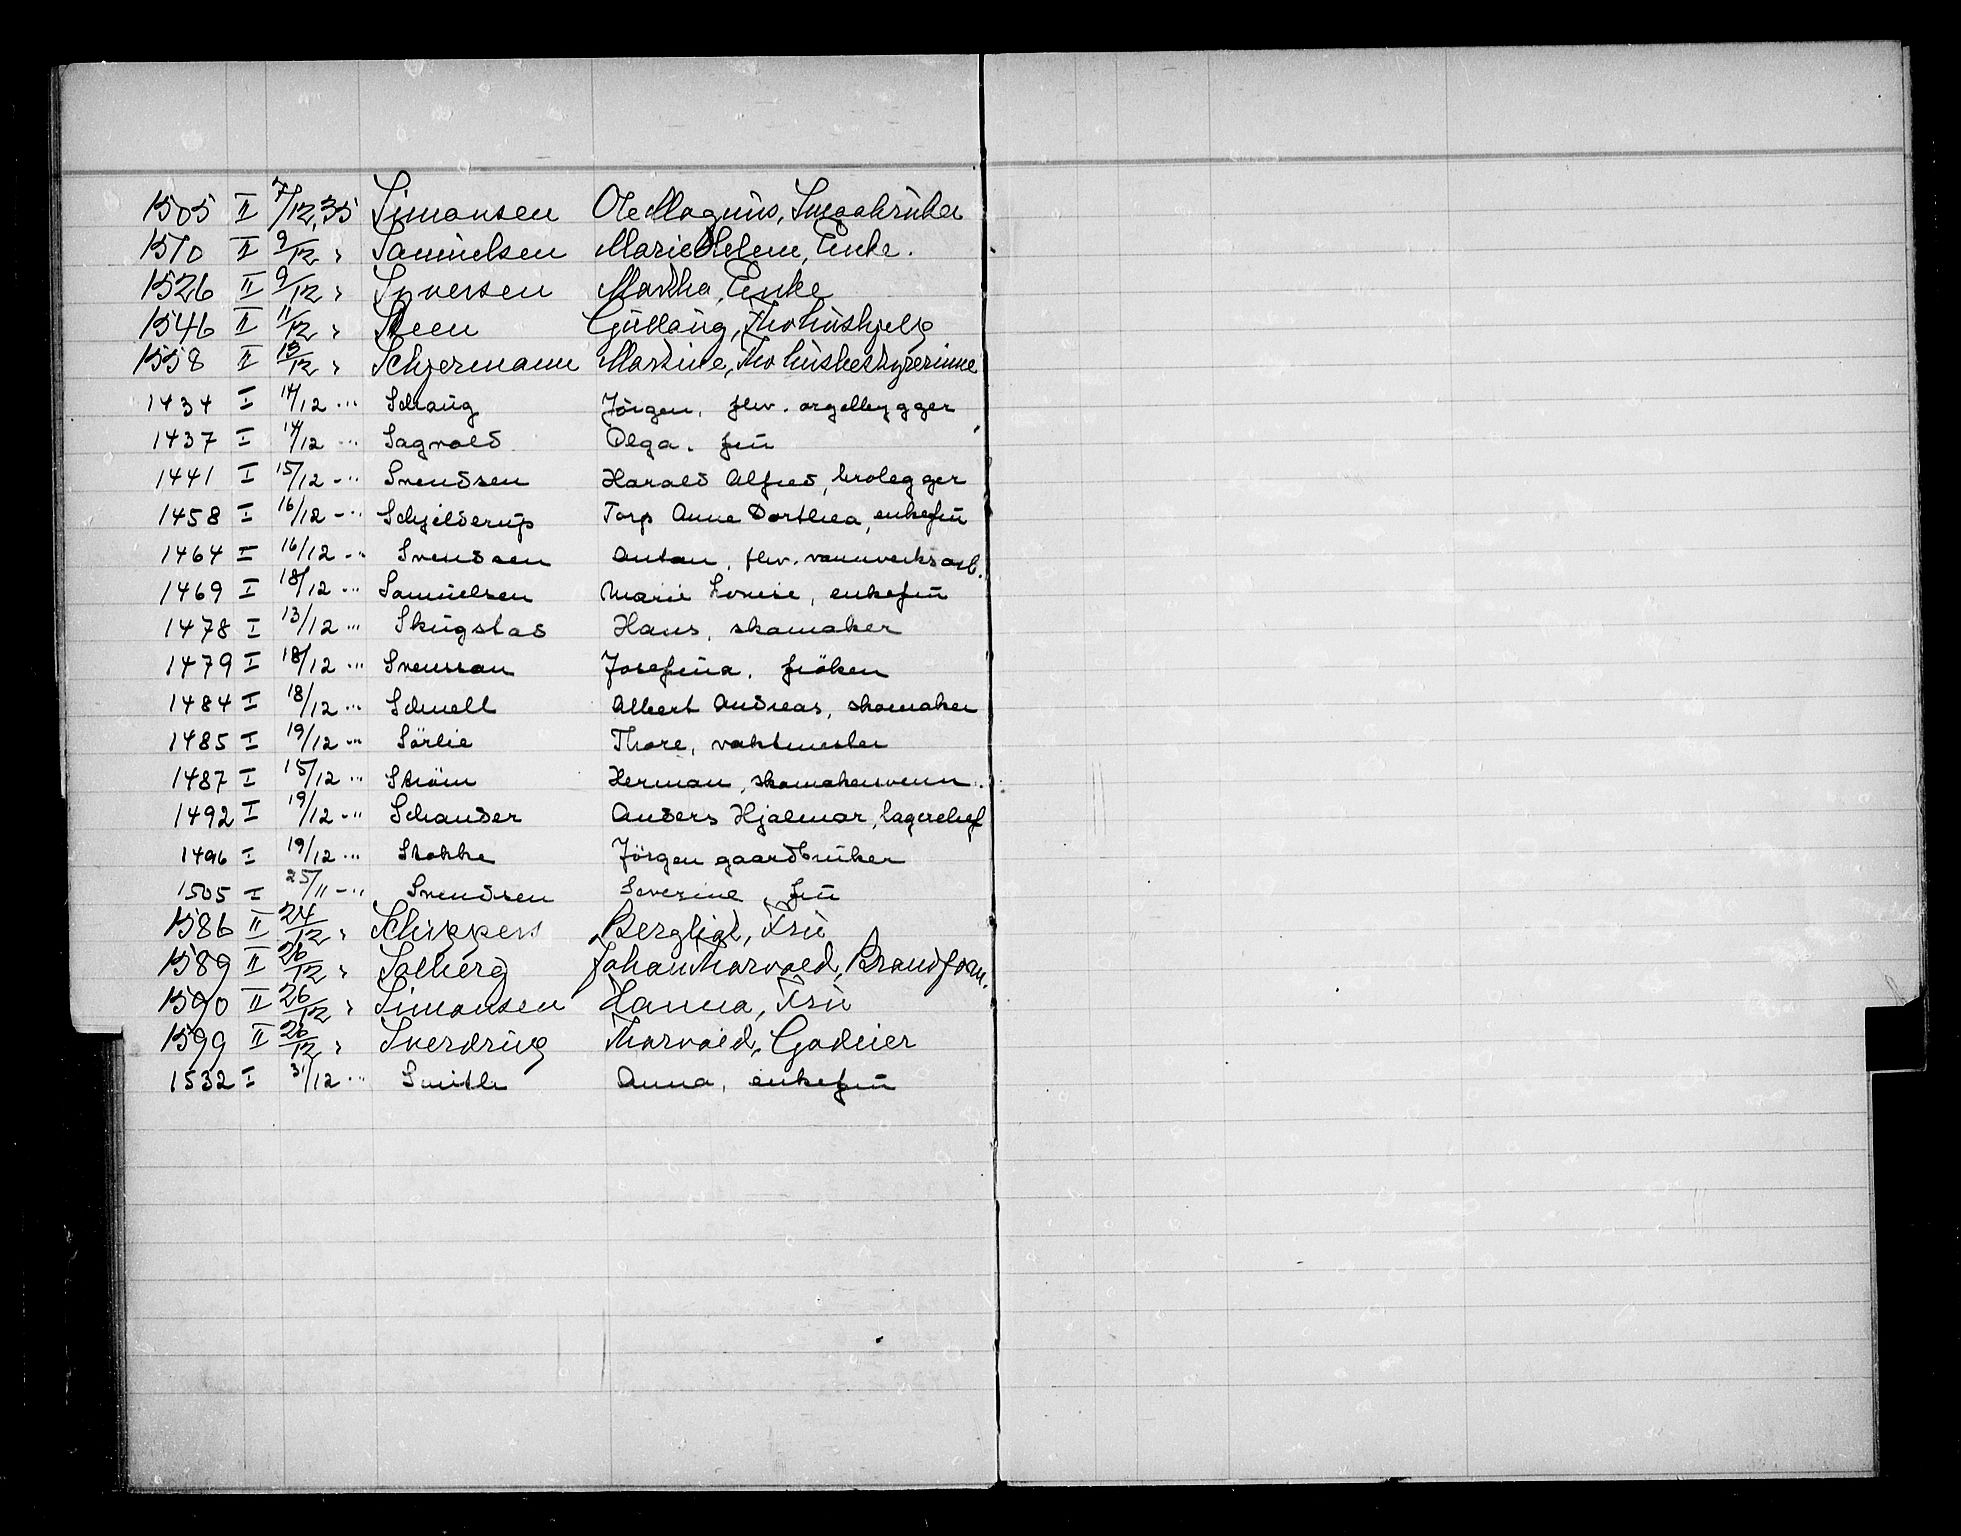 1505 II 7/12,35 Simonsen Ole Magnus, Smaabruker
1510 II 9/12 " Samuelsen Marie Helene, Enke.
1526 II 9/12 " Syversen Martha, Enke
1546 II 11/12 " Steen Gudlaug, fhv hushjelp
1558 II 13/12 " Schjermann Martine, fhv husbestyrerinne
1434 I 14/12 -"- Schaug Jörgen, fhv. orgelbygger
1437 I 14/12 -"- Sagvold Olga. fru
1441 I 15/12 -"- Svendsen Harald Alfred, brolegger
1458 I 16/12 -"- Schjelderup Torp Anne Dorthea, enkefru
1464 I 16/12 -"- Svendsen Anton, fhv. vannverksarb.
1469 I 18/12 -"- Samuelsen Marie Lovise, enkefru
1478 I 13/12 -"- Skugstad Hans, skomaker
1479 I 18/12 -"- Svensson Josefina, fröken
1484 I 18/12 -"- Schnell Albert Andreas, skomaker
1485 I 19/12 -"- Sörlie Thore, vaktmester
1487 I 15/12 -"- Ström Herman, skomakersvenn.
1492 I 19/12 -"- Schander Anders Hjalmar, lagerchef
1496 I 19/12 -"- Stokke Jörgen gaardbruker
1505 I 25/11 -"- Svendsen Severine, fru
1586 II 24/12 " Schippers Bergliot, Fru
1589 II 26/12 " Solberg Johan Thorvald, Brandform.
1590 II 26/12 " Simonsen Hanna, Fru
1599 II 26/12 " Sverdrup Thorvald, Gadeier
1532 I 31/12 -"- Smith Anna, enkefru